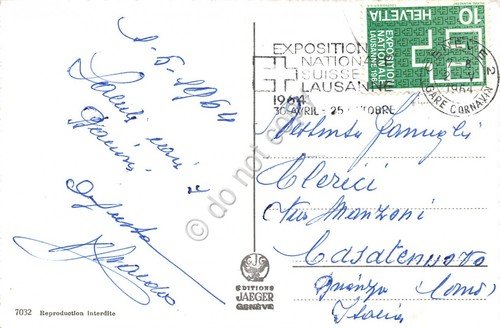 1-5-1964
Saluti cari e
EXPOSITION
NATIONALE
SUISSE
LAUSANNE
1964
30 AVRIL - 25 OCTOBRE
10
HELVETIA
EXPOSITION
NATIONALE
LAUSANNE 1964
GENEVE 2
1964
GARE CORNAVIN
Famiglia
Clerici
Via Manzoni
Casatenovo
Brianza (Como)
Italia
© do not copy
ÉDITIONS
JAEGER
GENÈVE
7032 Reproduction interdite